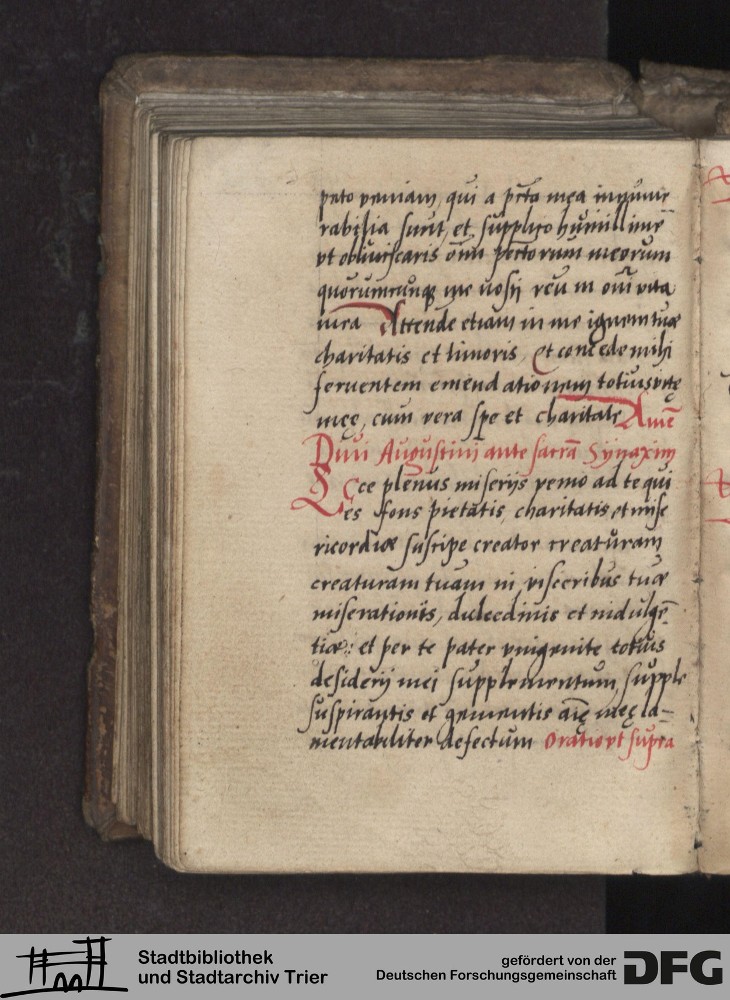 peto veniam, qui a pcta mea innume
rabilia sunt, et supplico humillime
vt obliuiscaris oīm pctorum meorum
quorumcunque me nosti reū in oī vita
mea Attende etiam in me ignem tuæ
charitatis et timoris, et concede mihi
feruentem emendationem totius vitę
męę, cum vera spe et charitate Amē
Diui Augustini ante sacrā Synaxim
Ecce plenus miserijs venio ad te qui
es fons pietatis, charitatis, et mise
ricordiæ suscipe creator creaturam
creaturam tuam in visceribus tuæ
miserationis, dulcedinis et indulgē
tiæ: et per te pater vnigenite totius
desiderij mei supplementum, supple
suspirantis et gementis aīę męę la-
mentabiliter defectum Oratio vt supra
Stadtbibliothek
und Stadtarchiv Trier
gefördert von der
Deutschen Forschungsgemeinschaft
DFG